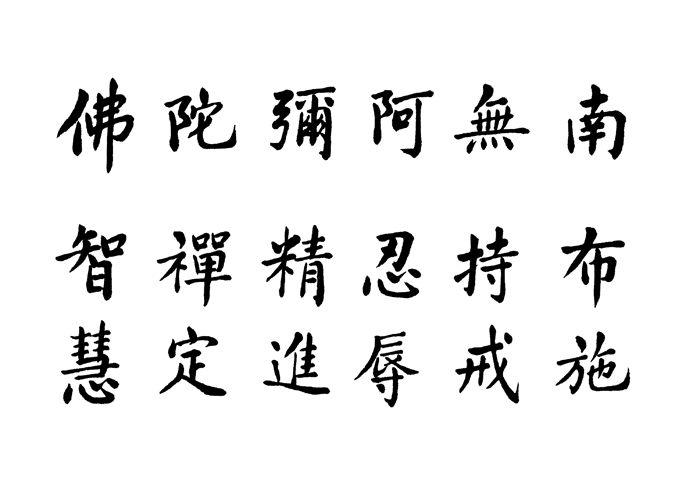 南無阿彌陀佛
布施
持戒
忍辱
精進
禪定
智慧